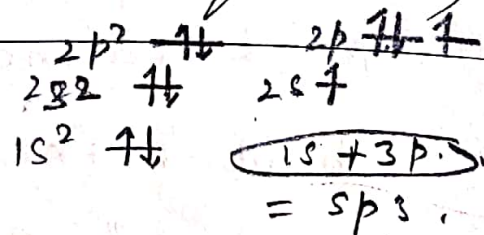 2p² ⥮ 2p ⥮ ↑
2s2 ⥮ 2s ↑
1s² ↑↓ 1s + 3p.
= sp3.